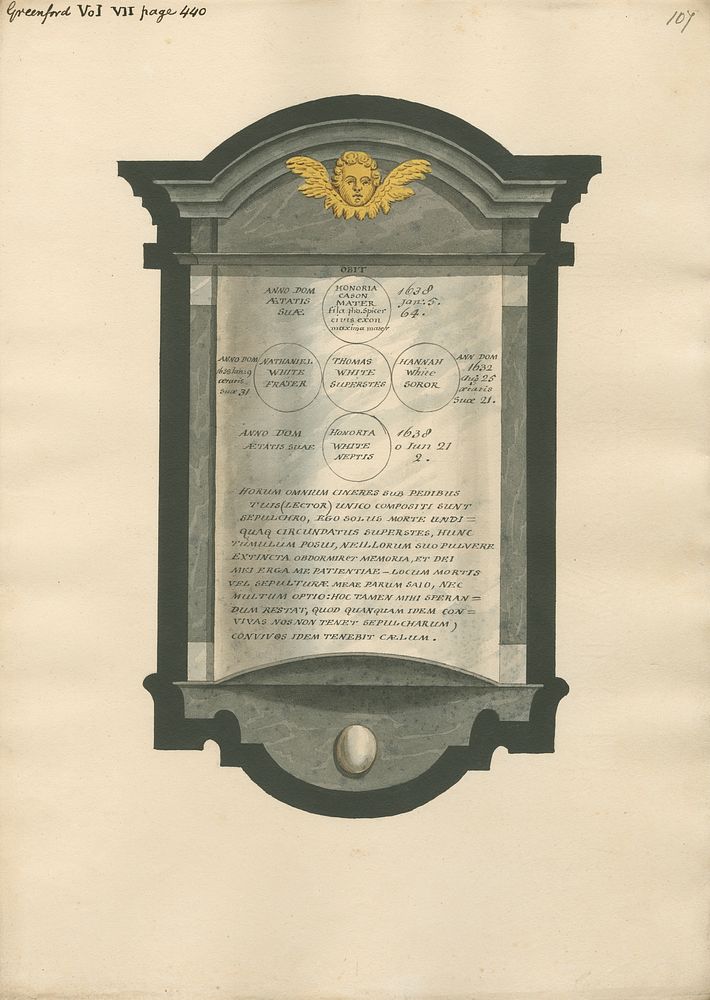 Greenford Vol VII page 440
107
OBIT
ANNO DOM
ÆTATIS
SUÆ
HONORIA
CASON
MATER
filia pho. Spicer
civis exon
maxima maior
1638
Jan: 5.
64.
ANNO DOM
ætatis
Suæ 31
NATHANIEL
WHITE
FRATER
THOMAS
WHITE
SUPERSTES
HANNAH
White
SOROR
ANN DOM
1632
Aug 25
ætatis
Suæ 21.
ANNO DOM
ÆTATIS SUAE
HONORIA
WHITE
NEPTIS
1638
o Iun 21
2.
HORUM OMNIUM CINERES SUB PEDIBUS
TUIS (LECTOR) UNICO COMPOSITI SUNT
SEPULCHRO, EGO SOLUS MORTE UNDI=
QUAQ CIRCUNDATUS SUPERSTES, HUNC
TUMULUM POSUI, NE ILLORUM SUO PULVERE
EXTINCTA OBDORMIRET MEMORIA, ET DEI
MEI ERGA ME PATIENTIAE - LOCUM MORTIS
VEL SEPULTURÆ MEAE PARUM SAIO, NEC
MULTUM OPTIO: HOC TAMEN MIHI SPERAN=
DUM RESTAT, QUOD QUANQUAM IDEM CON=
VIVAS NOS NON TENET SEPULCHARUM)
CONVIVOS IDEM TENEBIT CÆLUM.